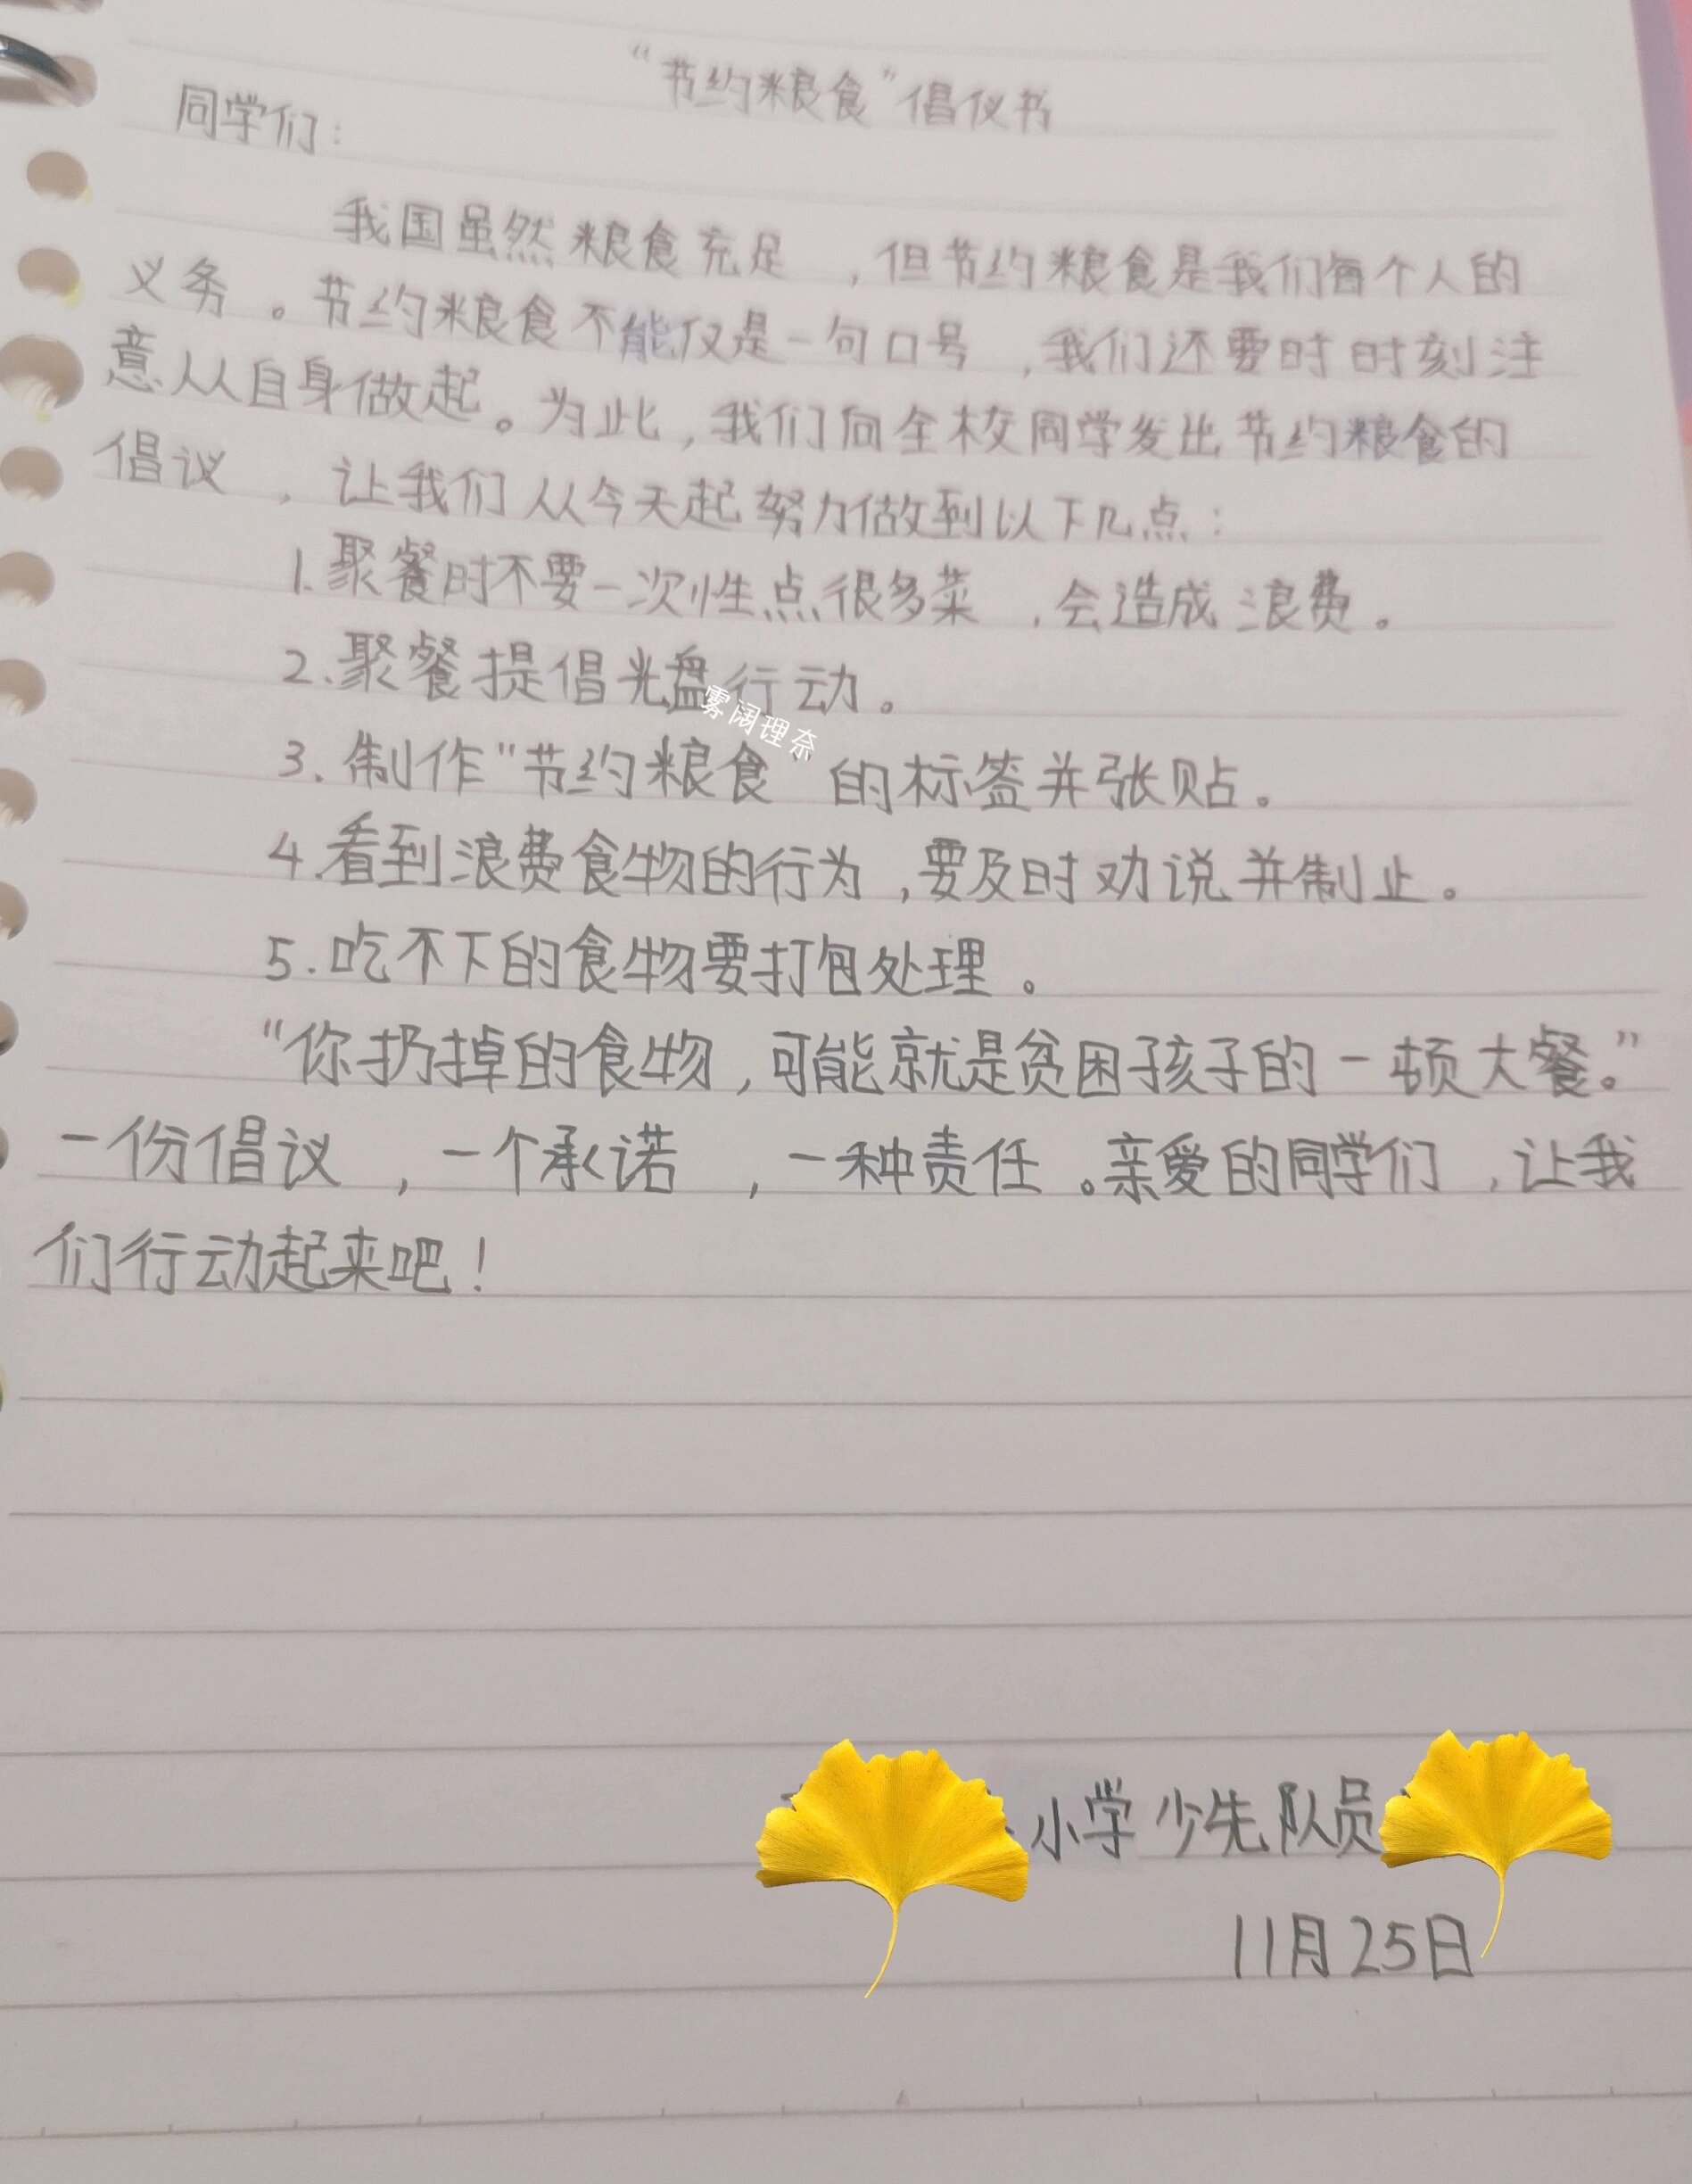 “节约粮食”倡仪书
同学们：
我国虽然粮食充足，但节约粮食是我们每个人的
义务。节约粮食不能仅是一句口号，我们还要时时刻注
意从自身做起。为此，我们向全校同学发出节约粮食的
倡议，让我们从今天起努力做到以下几点：
1.聚餐时不要一次性点很多菜，会造成浪费。
2.聚餐提倡光盘行动。
雾阔理奈
3.制作“节约粮食”的标签并张贴。
4.看到浪费食物的行为，要及时劝说并制止。
5.吃不下的食物要打包处理。
“你扔掉的食物，可能就是贫困孩子的一顿大餐。”
一份倡议，一个承诺，一种责任。亲爱的同学们，让我
们行动起来吧！
小学少先队员
11月25日